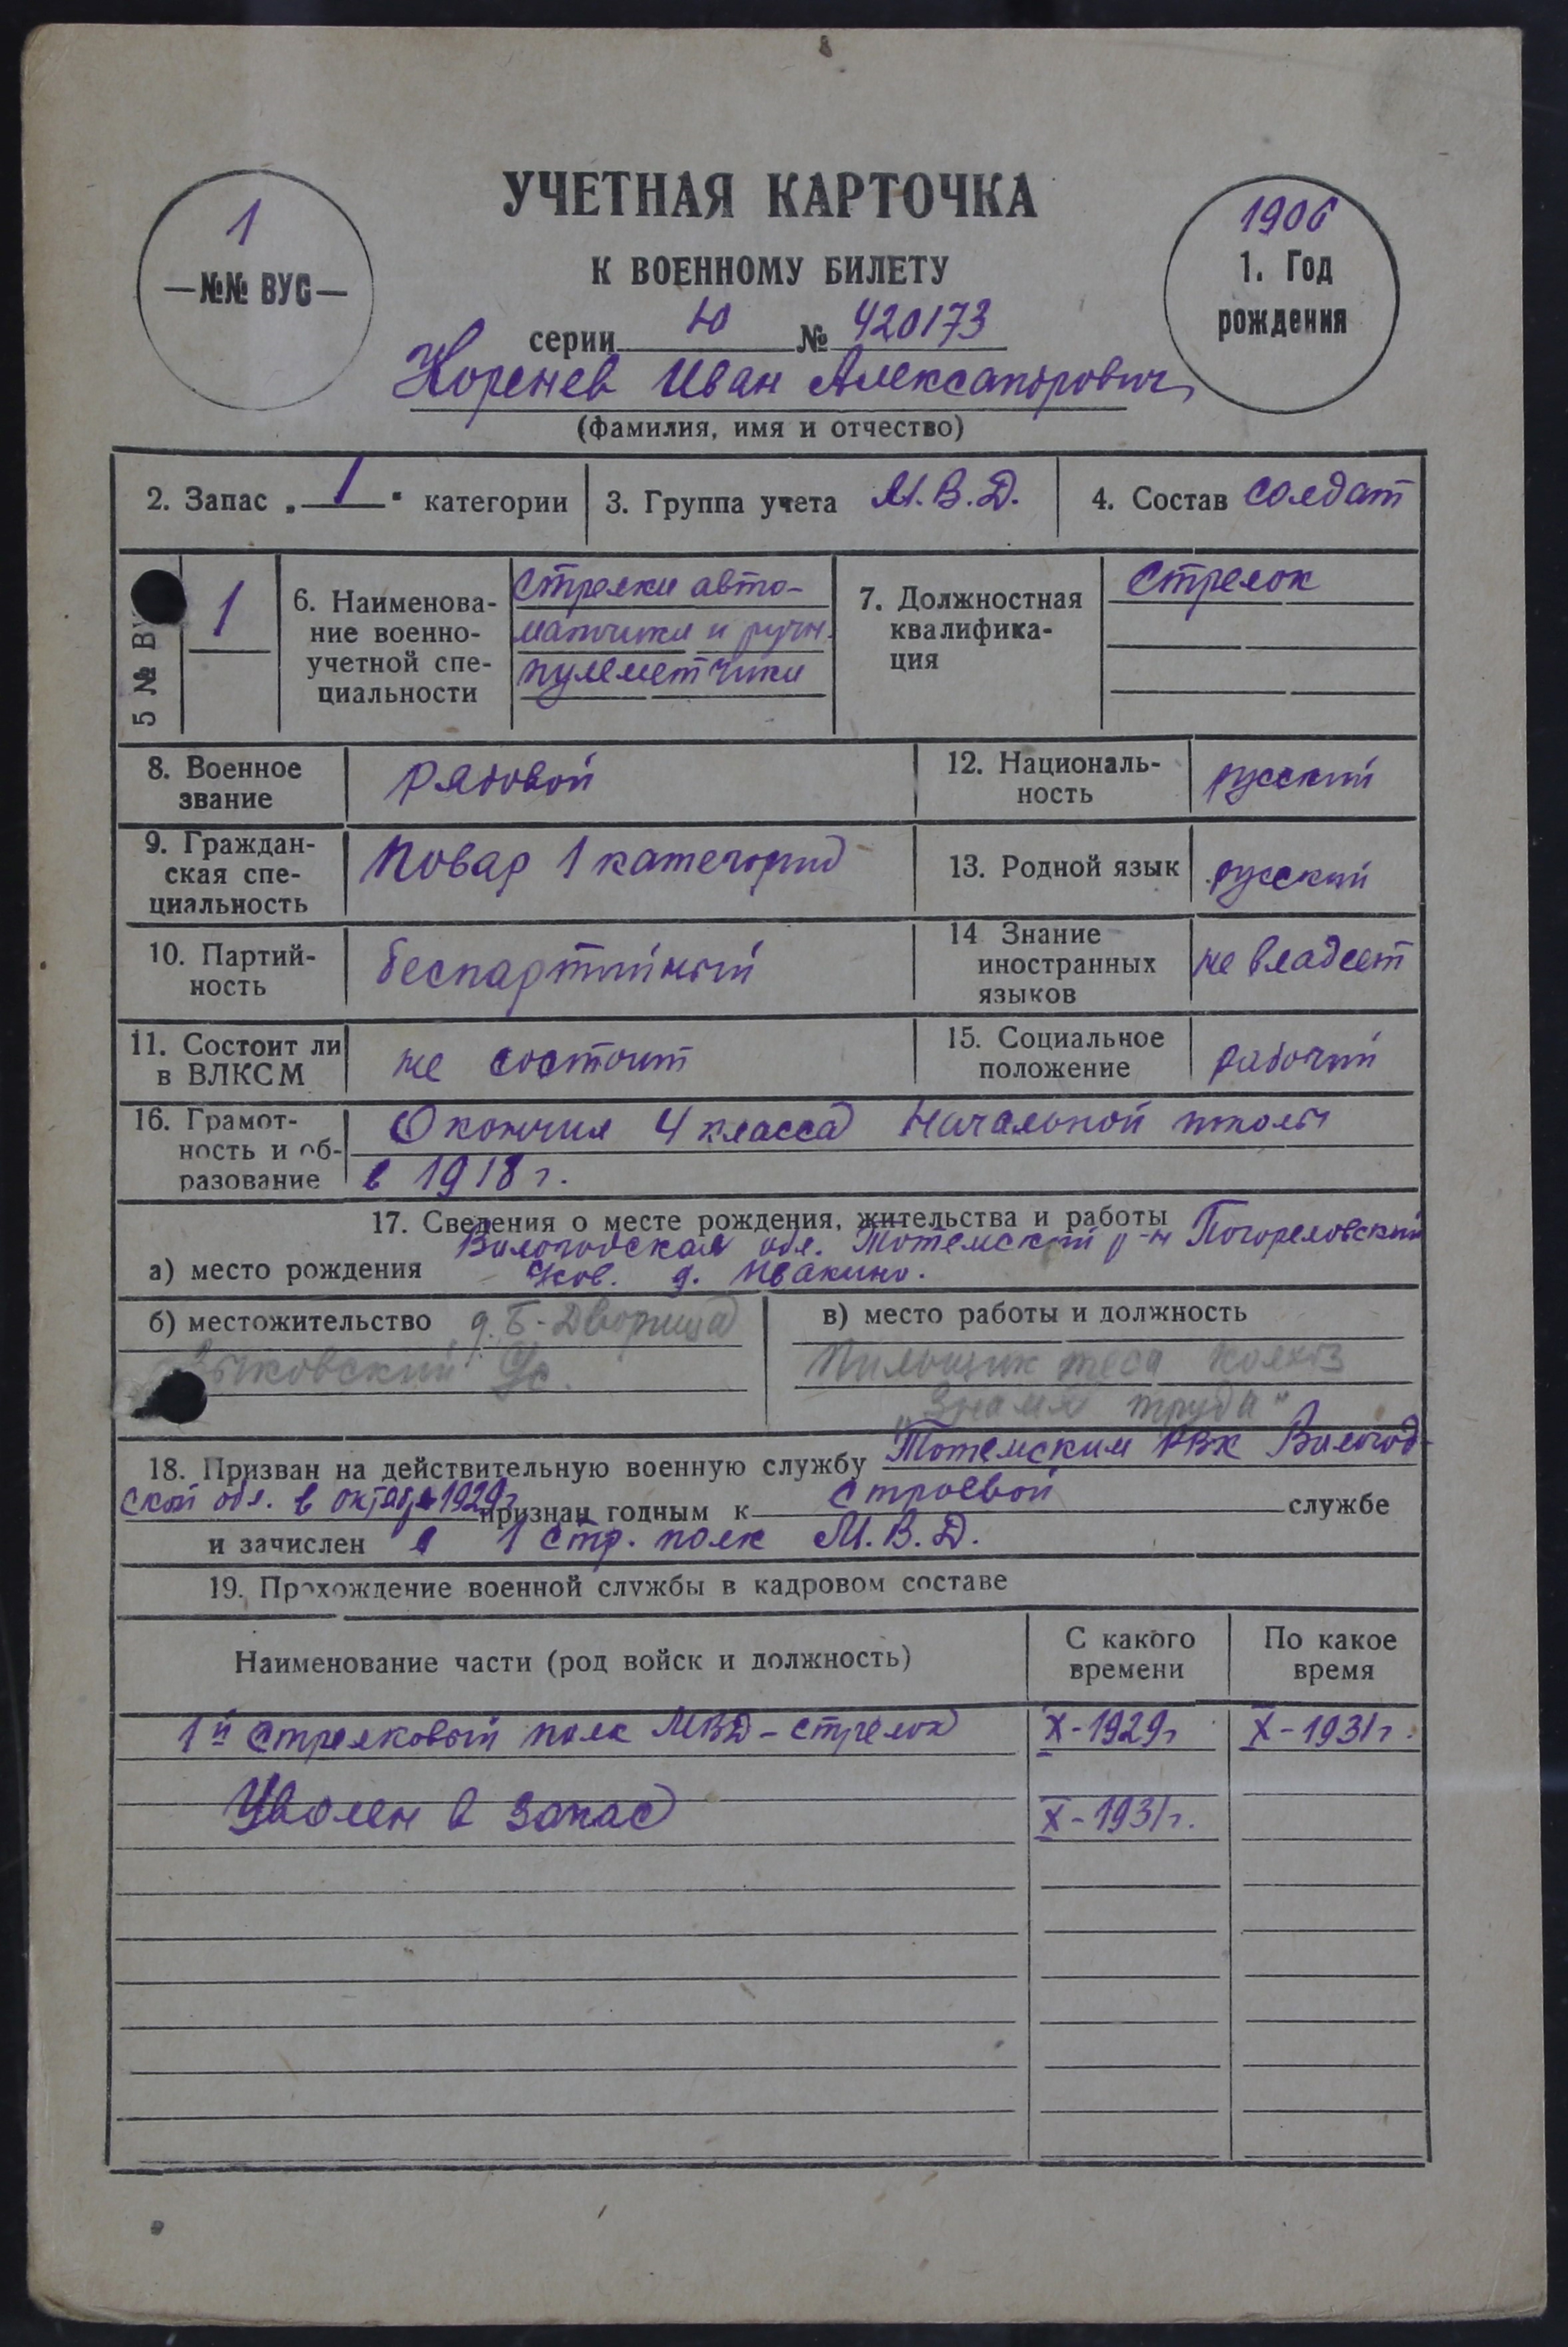 УЧЕТНАЯ КАРТОЧКА
К ВОЕННОМУ БИЛЕТУ
1
—№№ ВУС—
1906
1. Год
рождения
серии Ю № 420173
Коренев Иван Александрович
(фамилия, имя и отчество)
2. Запас „1" категории
3. Группа учета М.В.Д.
4. Состав солдат
5 № ВУ
1
6. Наименова-
ние военно-
учетной спе-
циальности
Стрелки авто-
матчики и ручн.
пулеметчики
7. Должностная
квалифика-
ция
Стрелок
8. Военное
звание
рядовой
12. Националь-
ность
русский
9. Граждан-
ская спе-
циальность
Повар 1 категории
13. Родной язык
русский
10. Партий-
ность
беспартийный
14 Знание
иностранных
языков
не владеет
11. Состоит ли
в ВЛКСМ
не состоит
15. Социальное
положение
рабочий
16. Грамот-
ность и об-
разование
Окончил 4 класса начальной школы
в 1918 г.
17. Сведения о месте рождения, жительства и работы
Вологодская обл. Тотемский р-н Погореловский
а) место рождения
д. Ивакино.
б) местожительство д. Б-Дворища
в) место работы и должность
Пильщик теса колхоз
„Знамя труда"
18. Призван на действительную военную службу Тотемским РВК Вологод-
ской обл. в октябре 1929г признан годным к строевой службе
и зачислен в 1 стр. полк М.В.Д.
19. Прохождение военной службы в кадровом составе
Наименование части (род войск и должность)
С какого
времени
По какое
время
1й стрелковый полк МВД - стрелок X-1929г X-1931г.
Уволен в запас X-1931г.